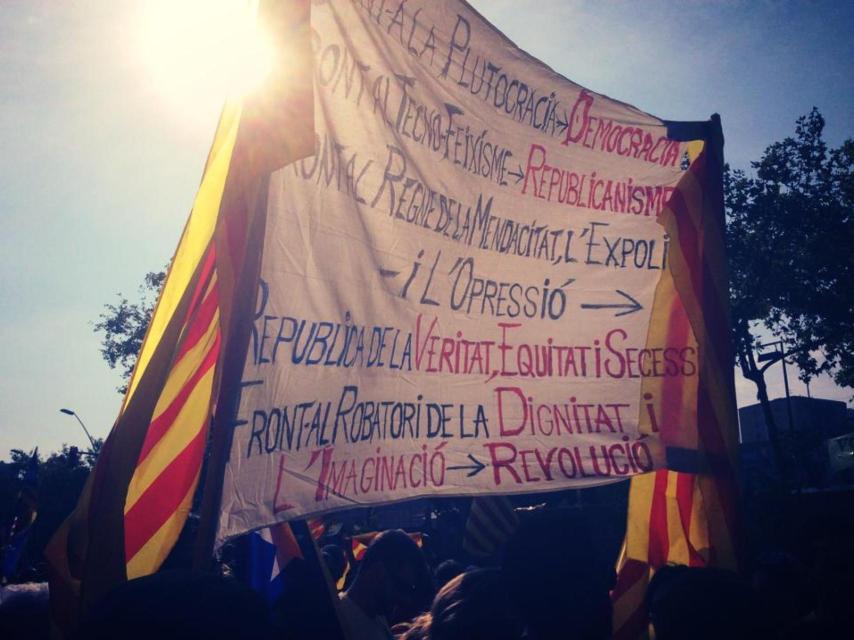 A LA PLUTOCRÀCIA → DEMOCRÀCIA
AL TECNO-FEIXISME → REPUBLICANISME
AL REGNE DE LA MENDACITAT, L'EXPOLI
- i L'OPRESSIÓ →
REPUBLICA DE LA VERITAT, EQUITAT i SECESS
FRONT-AL ROBATORI DE LA DIGNITAT i
L'IMAGINACIÓ → REVOLUCIÓ